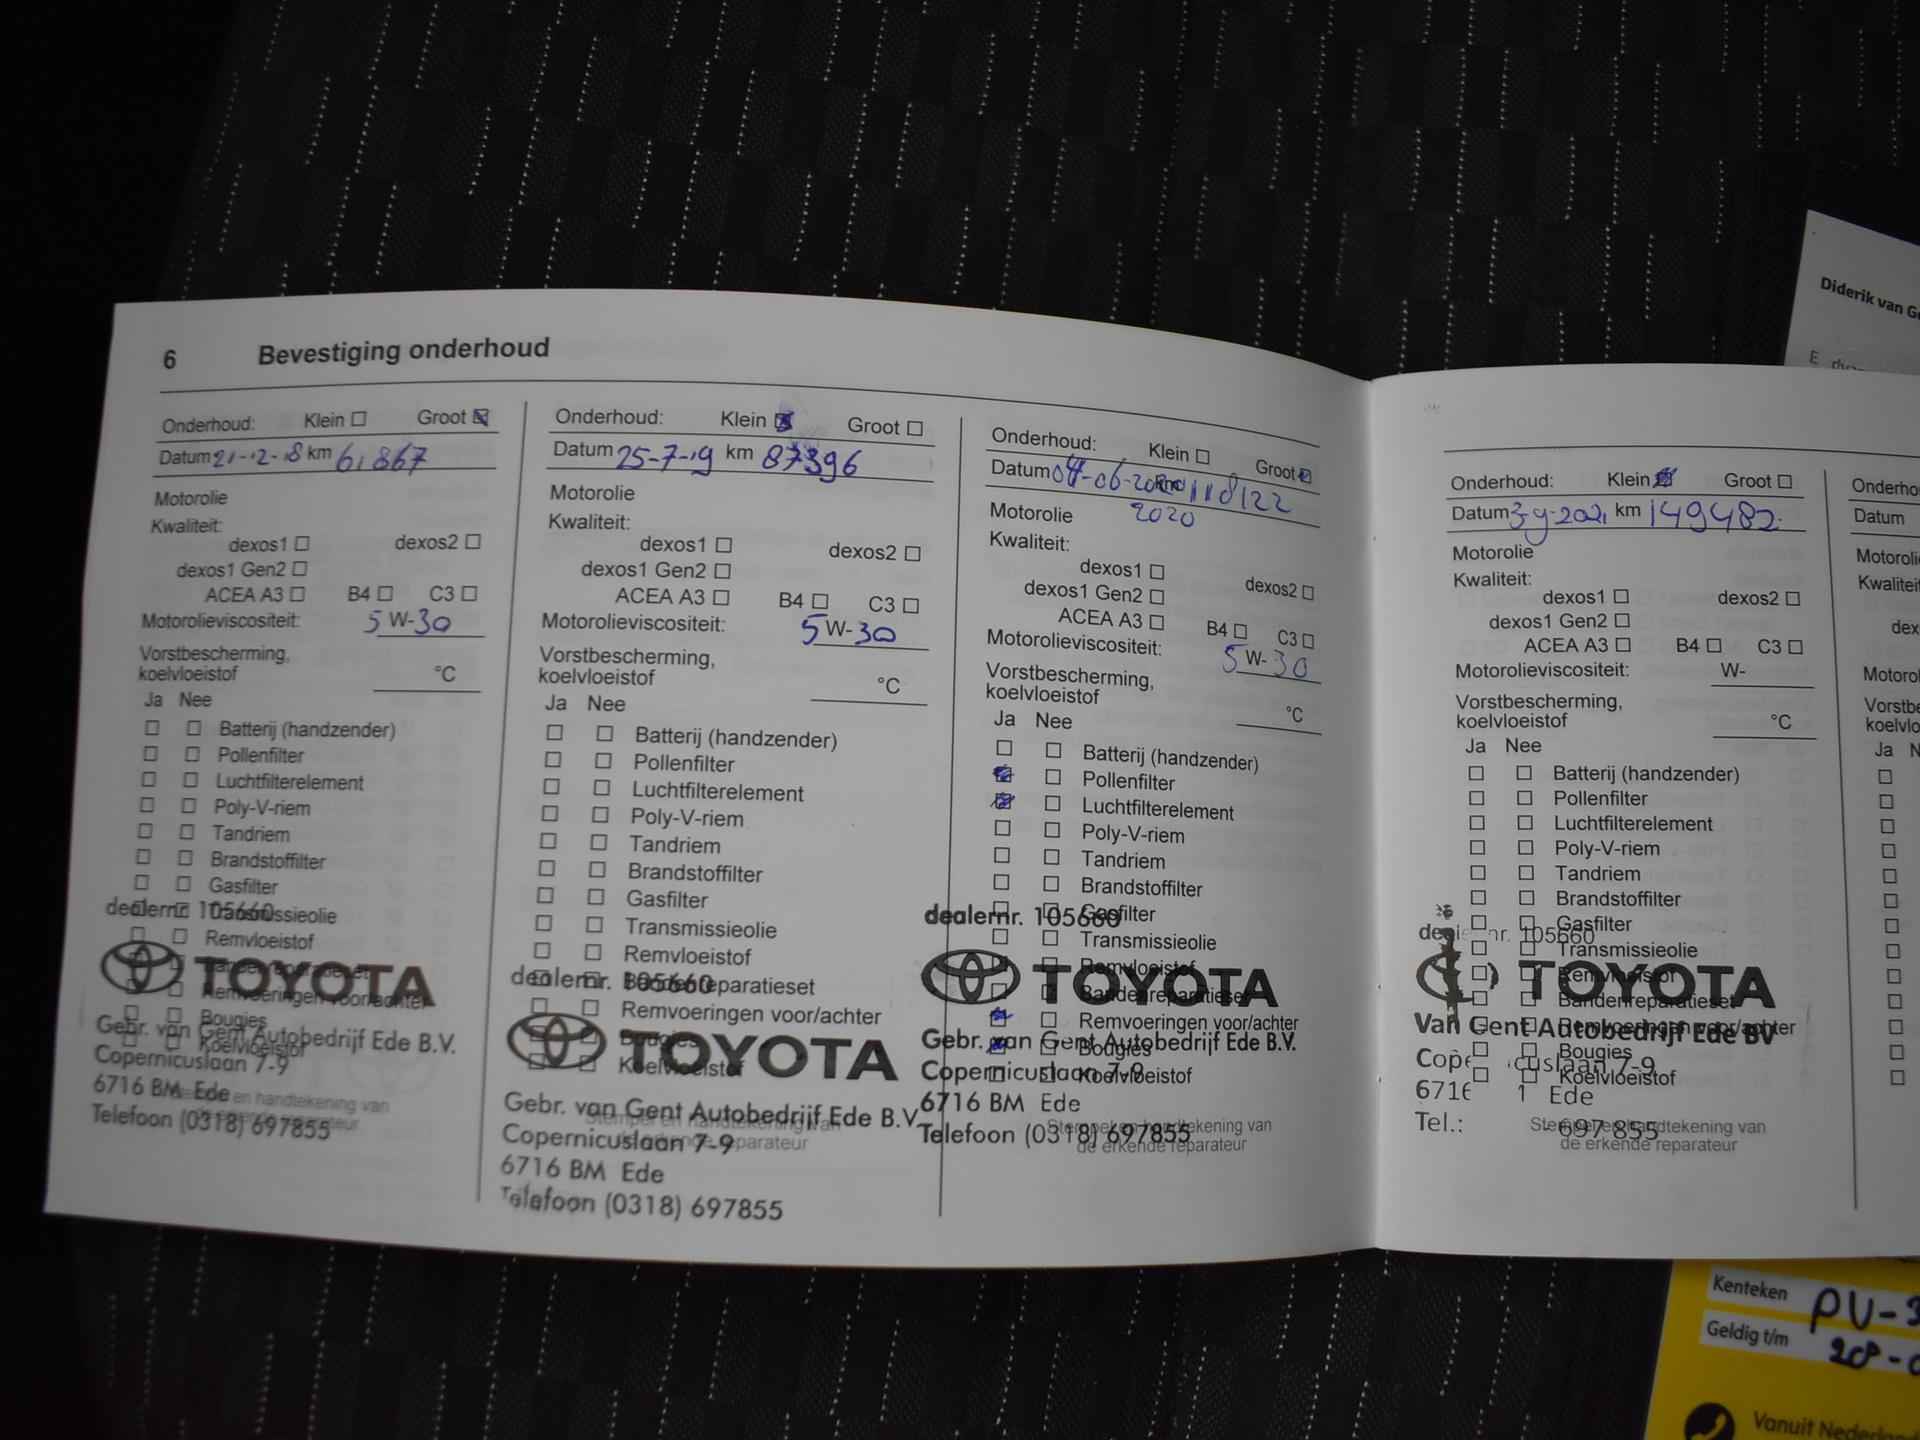 6 Bevestiging onderhoud
Onderhoud: Klein Groot
Datum 21-12-18 km 61867
Motorolie
Kwaliteit:
dexos1 dexos2
dexos1 Gen2
ACEA A3 B4 C3
Motorolieviscositeit: 5 W-30
Vorstbescherming,
koelvloeistof °C
Ja Nee
Batterij (handzender)
Pollenfilter
Luchtfilterelement
Poly-V-riem
Tandriem
Brandstoffilter
Gasfilter
Transmissieolie
Remvloeistof
Bandenreparatieset
Remvoeringen voor/achter
Bougies
Koelvloeistof
dealernr. 105660
TOYOTA
Gebr. van Gent Autobedrijf Ede B.V.
Copernicuslaan 7-9
6716 BM Ede
Telefoon (0318) 697855
Onderhoud: Klein Groot
Datum 25-7-19 km 87396
Motorolie
Kwaliteit:
dexos1 dexos2
dexos1 Gen2
ACEA A3 B4 C3
Motorolieviscositeit: 5 W-30
Vorstbescherming,
koelvloeistof °C
Ja Nee
Batterij (handzender)
Pollenfilter
Luchtfilterelement
Poly-V-riem
Tandriem
Brandstoffilter
Gasfilter
Transmissieolie
Remvloeistof
Bandenreparatieset
Remvoeringen voor/achter
Bougies
Koelvloeistof
dealernr. 105660
TOYOTA
Gebr. van Gent Autobedrijf Ede B.V.
Copernicuslaan 7-9
6716 BM Ede
Telefoon (0318) 697855
Stempel en handtekening van
de erkende reparateur
Onderhoud: Klein Groot
Datum 04-06-2020 km 118122
2020
Motorolie
Kwaliteit:
dexos1 dexos2
dexos1 Gen2
ACEA A3 B4 C3
Motorolieviscositeit: 5 W-30
Vorstbescherming,
koelvloeistof °C
Ja Nee
Batterij (handzender)
Pollenfilter
Luchtfilterelement
Poly-V-riem
Tandriem
Brandstoffilter
Gasfilter
Transmissieolie
Remvloeistof
Bandenreparatieset
Remvoeringen voor/achter
Bougies
Koelvloeistof
dealernr. 105660
TOYOTA
Gebr. van Gent Autobedrijf Ede B.V.
Copernicuslaan 7-9
6716 BM Ede
Telefoon (0318) 697855
Stempel en handtekening van
de erkende reparateur
Onderhoud: Klein Groot
Datum 3-9-2021 km 149482
Motorolie
Kwaliteit:
dexos1 dexos2
dexos1 Gen2
ACEA A3 B4 C3
Motorolieviscositeit: W-
Vorstbescherming,
koelvloeistof °C
Ja Nee
Batterij (handzender)
Pollenfilter
Luchtfilterelement
Poly-V-riem
Tandriem
Brandstoffilter
Gasfilter
Transmissieolie
Remvloeistof
Bandenreparatieset
Remvoeringen voor/achter
Bougies
Koelvloeistof
nr. 105660
TOYOTA
Van Gent Autobedrijf Ede BV
7-9
Ede
Tel.: 697 855
Stempel en handtekening van
de erkende reparateur
Datum
Ja
Diderik van
Kenteken PU-
Geldig t/m 28-
Vanuit